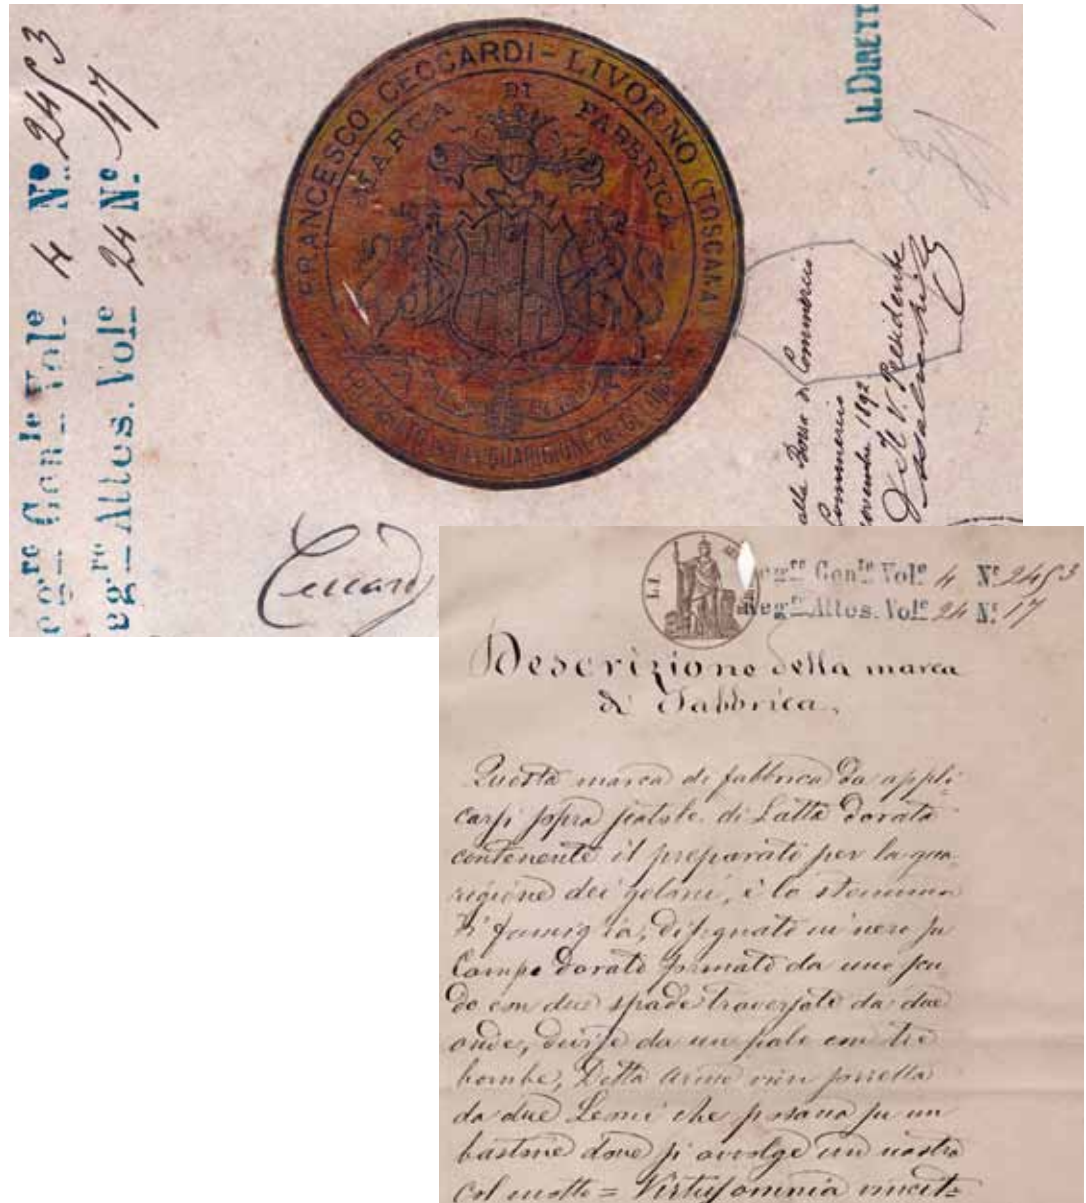 FRANCESCO CECCARDI - LIVORNO (TOSCANA)
MARCA DI FABBRICA
PREPARATO PER LA GUARIGIONE DEI GELONI
eg.re Gen.le Vol.e 4 N.o 2453
eg.re Attes. Vol.e 24 N.o 17
IL DIRETT
alla Borsa di Commercio
Commercio
1892
Il V. Presidente
Ceccardi
eg.re Gen.le Vol.e 4 N.o 2453
Reg.re Attes. Vol.e 24 N.o 17
Descrizione della marca
di Fabbrica,
Questa marca di fabbrica da appli-
carsi sopra scatole di Latta dorata
contenente il preparato per la gua-
rigione dei geloni, è lo stemma
di famiglia, disegnato in nero su
Campo dorato formato da uno scu-
do con due spade traversate da due
onde, divise da un palo con tre
bombe, Detta Arme vien sorretta
da due Leoni che posano su un
bastone dove si avvolge un nastro
col motto = Virtus omnia vincit=